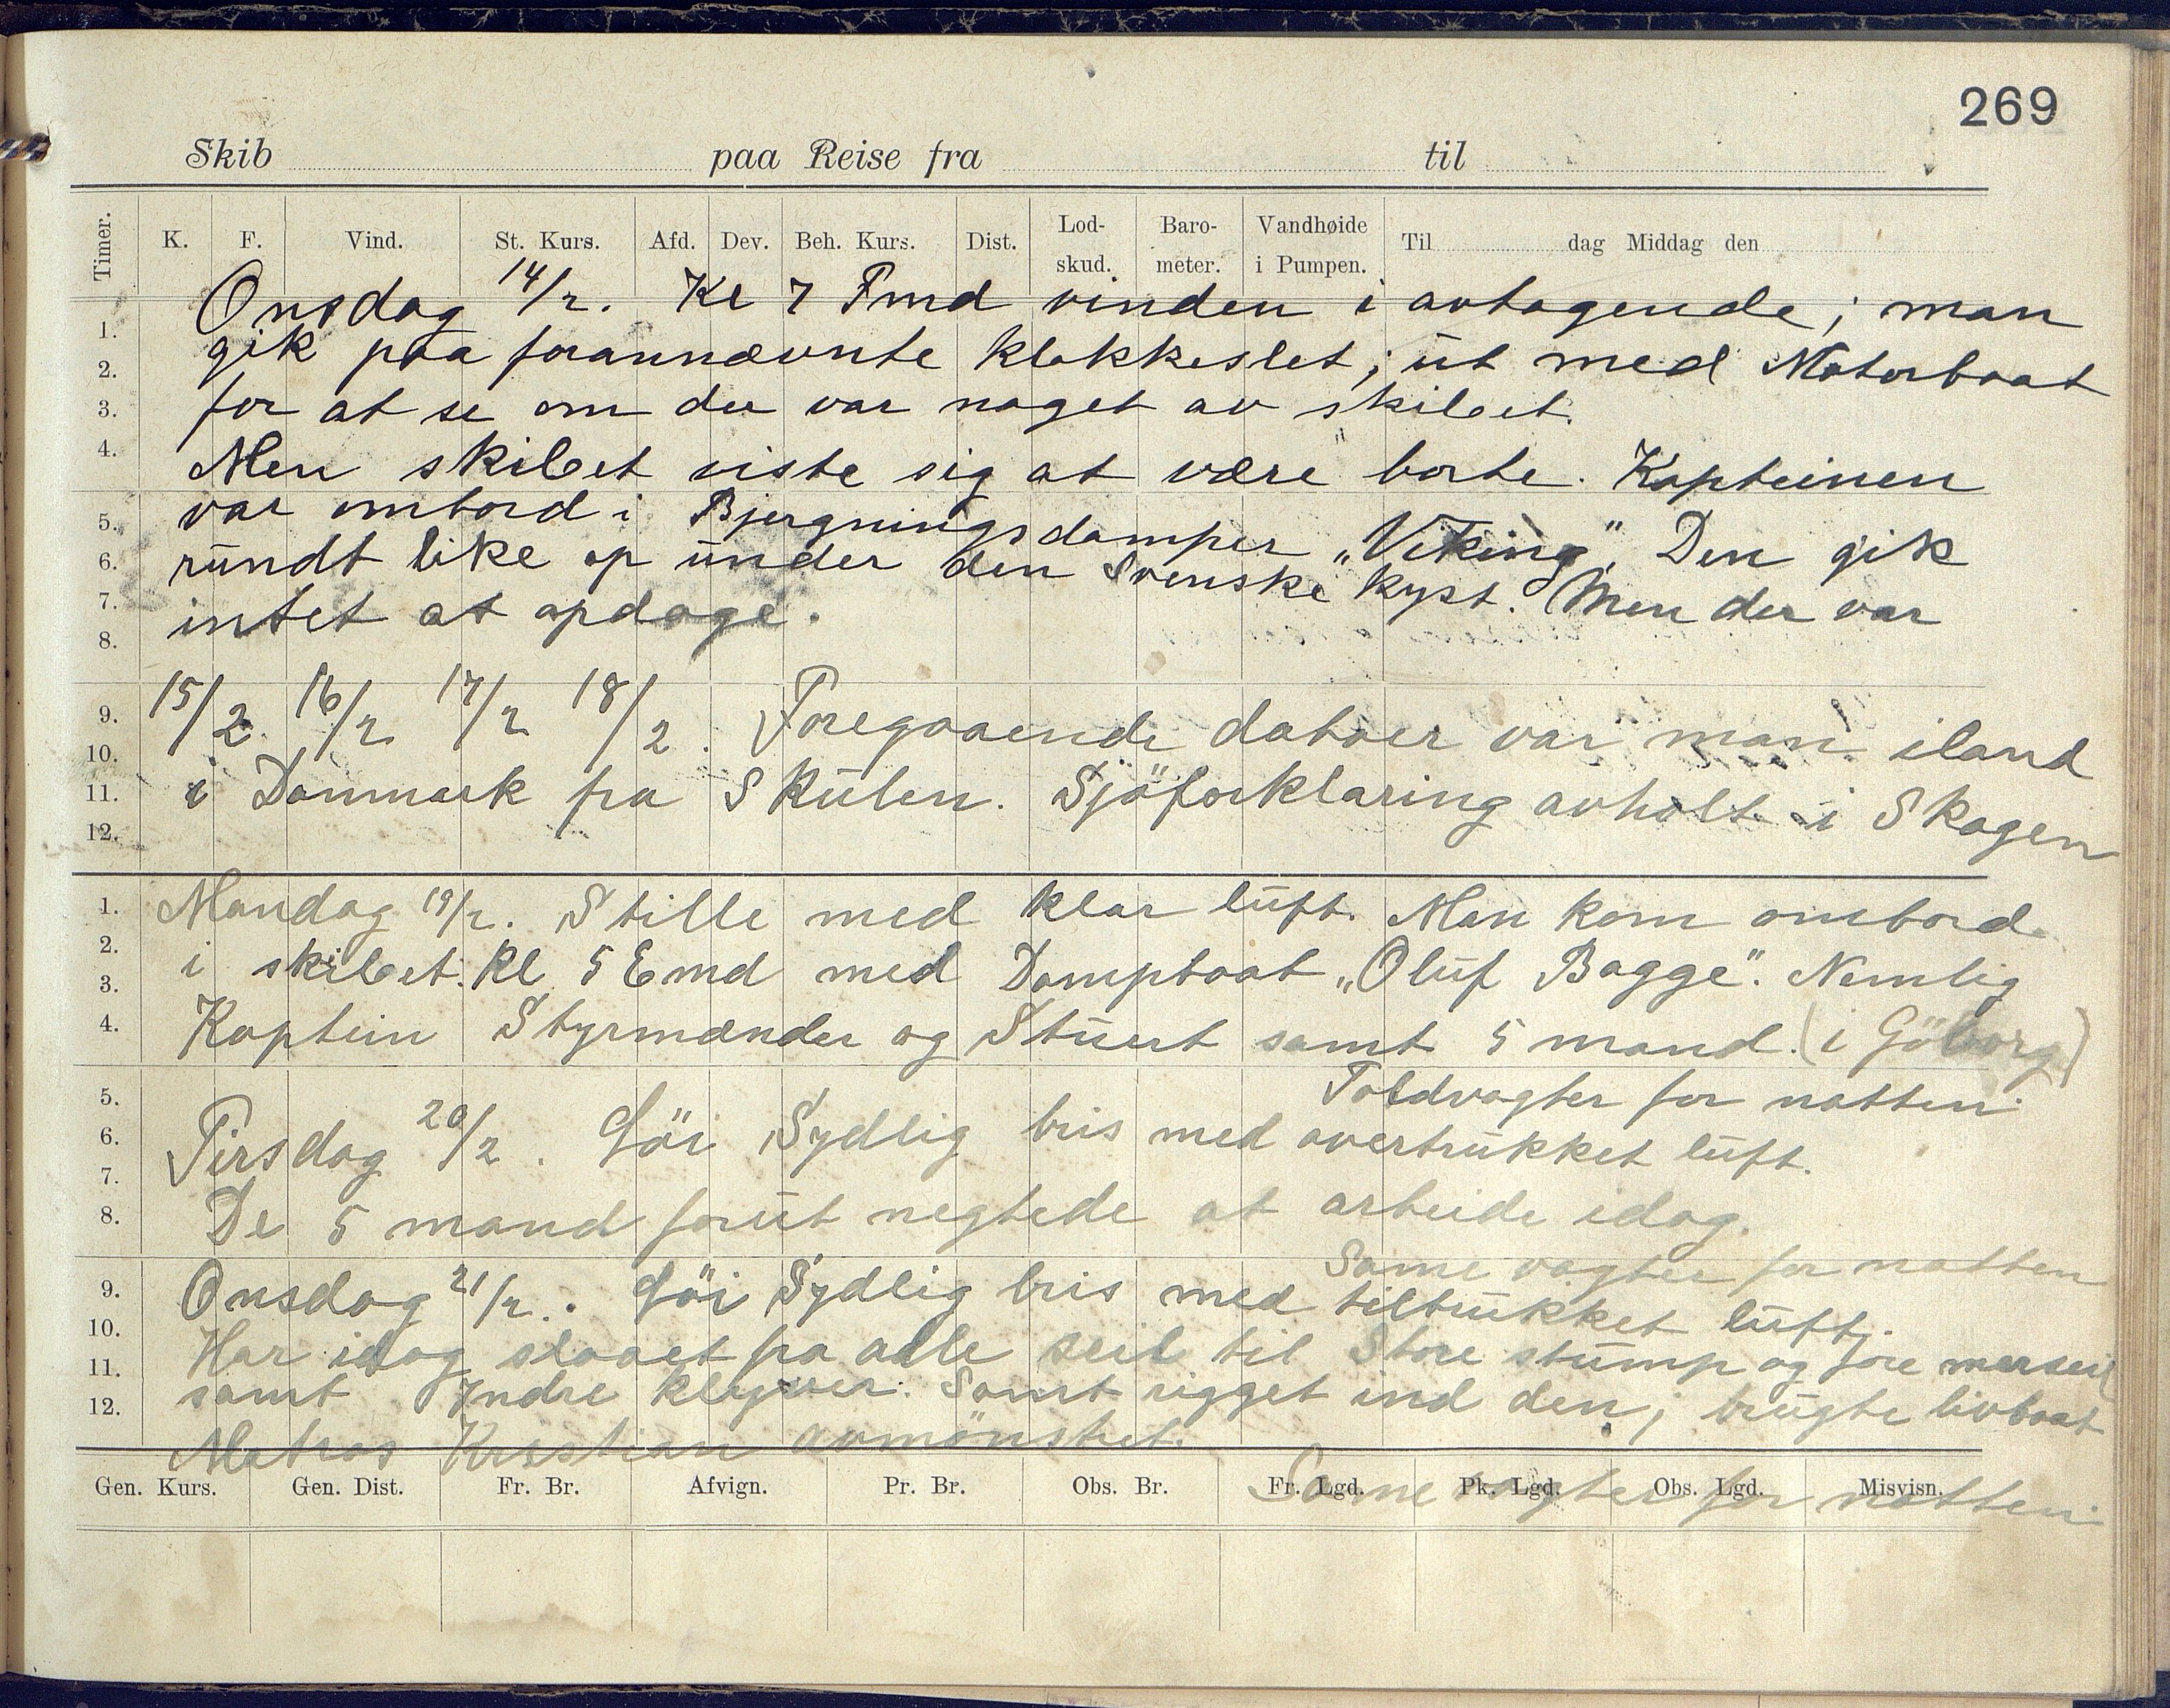 269
Skib paa Reise fra til
Timer. K. F. Vind. St. Kurs. Afd. Dev. Beh. Kurs. Dist. Lod-skud. Baro-meter. Vandhøide i Pumpen. Til dag Middag den
Onsdag 14/2. Kl 7 Fmd vinden i avtagende; man
1.
gik paa forannævnte klokkeslet; ut med Motorbaat
2.
for at se om der var noget av skibet.
3.
4.
Men skibet viste sig at være borte. Kapteinen
var ombord i Bjergningsdamper „Viking". Den gik
5.
rundt like op under den Svenske kyst. Men der var
6.
intet at opdage.
7.
8.
15/2 16/2 17/2 18/2. Foregaaende datoer var man iland
9.
10.
i Danmark fra Skuten. Sjöforklaring avholt i Skagen
11.
12.
Mandag 19/2. Stille med klar luft. Man kom ombord
1.
2.
i skibet. Kl 5 Emd med Dampbaat „Oluf Bagge". Nemlig
3.
Kaptein Styrmænder og Stuert samt 5 mand. (i Göborg)
4.
Toldvagter for natten.
5.
Tirsdag 20/2. Löi Sydlig bris med overtrukket luft.
6.
7.
De 5 mand forut negtede at arbeide idag.
8.
Same vagter for natten
Onsdag 21/2. Löi Sydlig bris med tiltrukket luft;
9.
10.
Har idag slaaet fra alle seil til Store stump og fore merseil
11.
samt Indre klyver. Samt rigget ind den; brugte livbaat
12.
Matros Kristian avmönstret.
Same vagter for natten.
Gen. Kurs. Gen. Dist. Fr. Br. Afvign. Pr. Br. Obs. Br. Fr. Lgd. Pk. Lgd. Obs. Lgd. Misvisn.